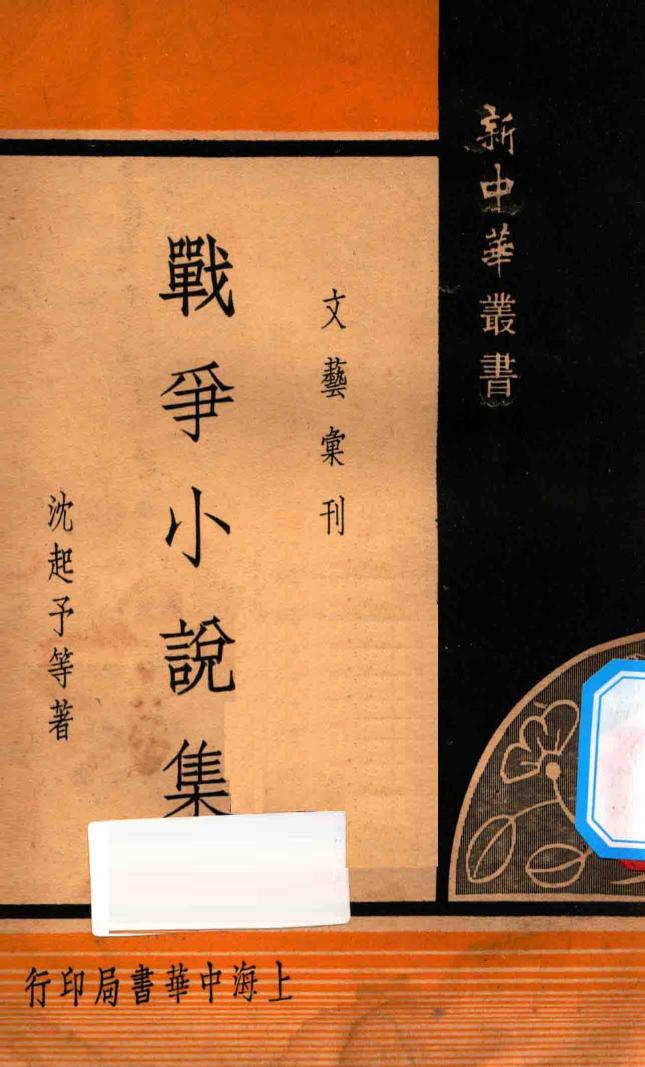 新中華叢書
文藝彙刊
戰爭小說集
沈起予等著
上海中華書局印行